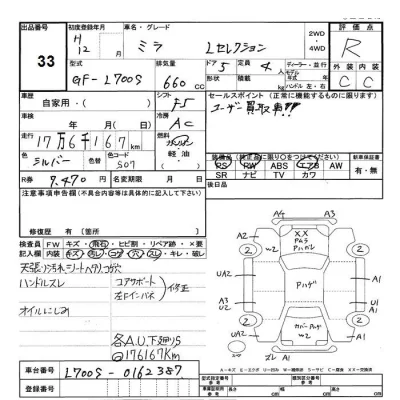 出品番号
33
初度登録年月
H
12
年
月
車名・グレード
ミラ
Lセレクション
2WD
・
4WD
評価点
R
型式
GF-L700S
排気量
660
CC
ドア
5
定員
4
人
形状
積載
kg
ディーラー・並行
モデル年式
ハンドル 左・右
外装
内装
C
C
車歴
自家用・(
)
シフト
F5
セールスポイント(正常に機能するものに限ります)
ユーザー買取車!!!
車検
年
月
日
冷房
AC
走行
17万6千167km
燃料
ガソリン
軽油
・
(
)
色
シルバー
色替
色コード
S07
装備品(純正品に限り○をつけてください)
PS
PW
ABS
エアB
AW
SR
ナビ
TV
カワ
新車保証書
有・無
R券
9.470円
名変期限
月
日
後日品
注意事項申告欄(不具合内容等は具体的に記入して下さい)
修復歴
有〔箇所
〕
検査員
記入欄
FW
キズ・飛石・ヒビ割・リペア跡・×要
内装
キズ・汚レ・コゲ・穴・スレ・キレ・破レ
天張り汚れ シートヘタリ、コゲ穴
ハンドルスレ
オイルにじみ
コアサポート
左Fインパネ
修正
各A.U.下廻りS
@176167Km
A4
A3
A2
W2
2
2
XX
Pムラ
Pハガレ
UA2
Pハゲ
A1
A3
U2
U1
A1
カバーPハゲ
W2
UA2
2
2
A1
スレ A1
車台番号
L700S-0162387
登録番号
型式指定番号
類別区分番号
参考
長さ
cm
幅
cm
高さ
cm